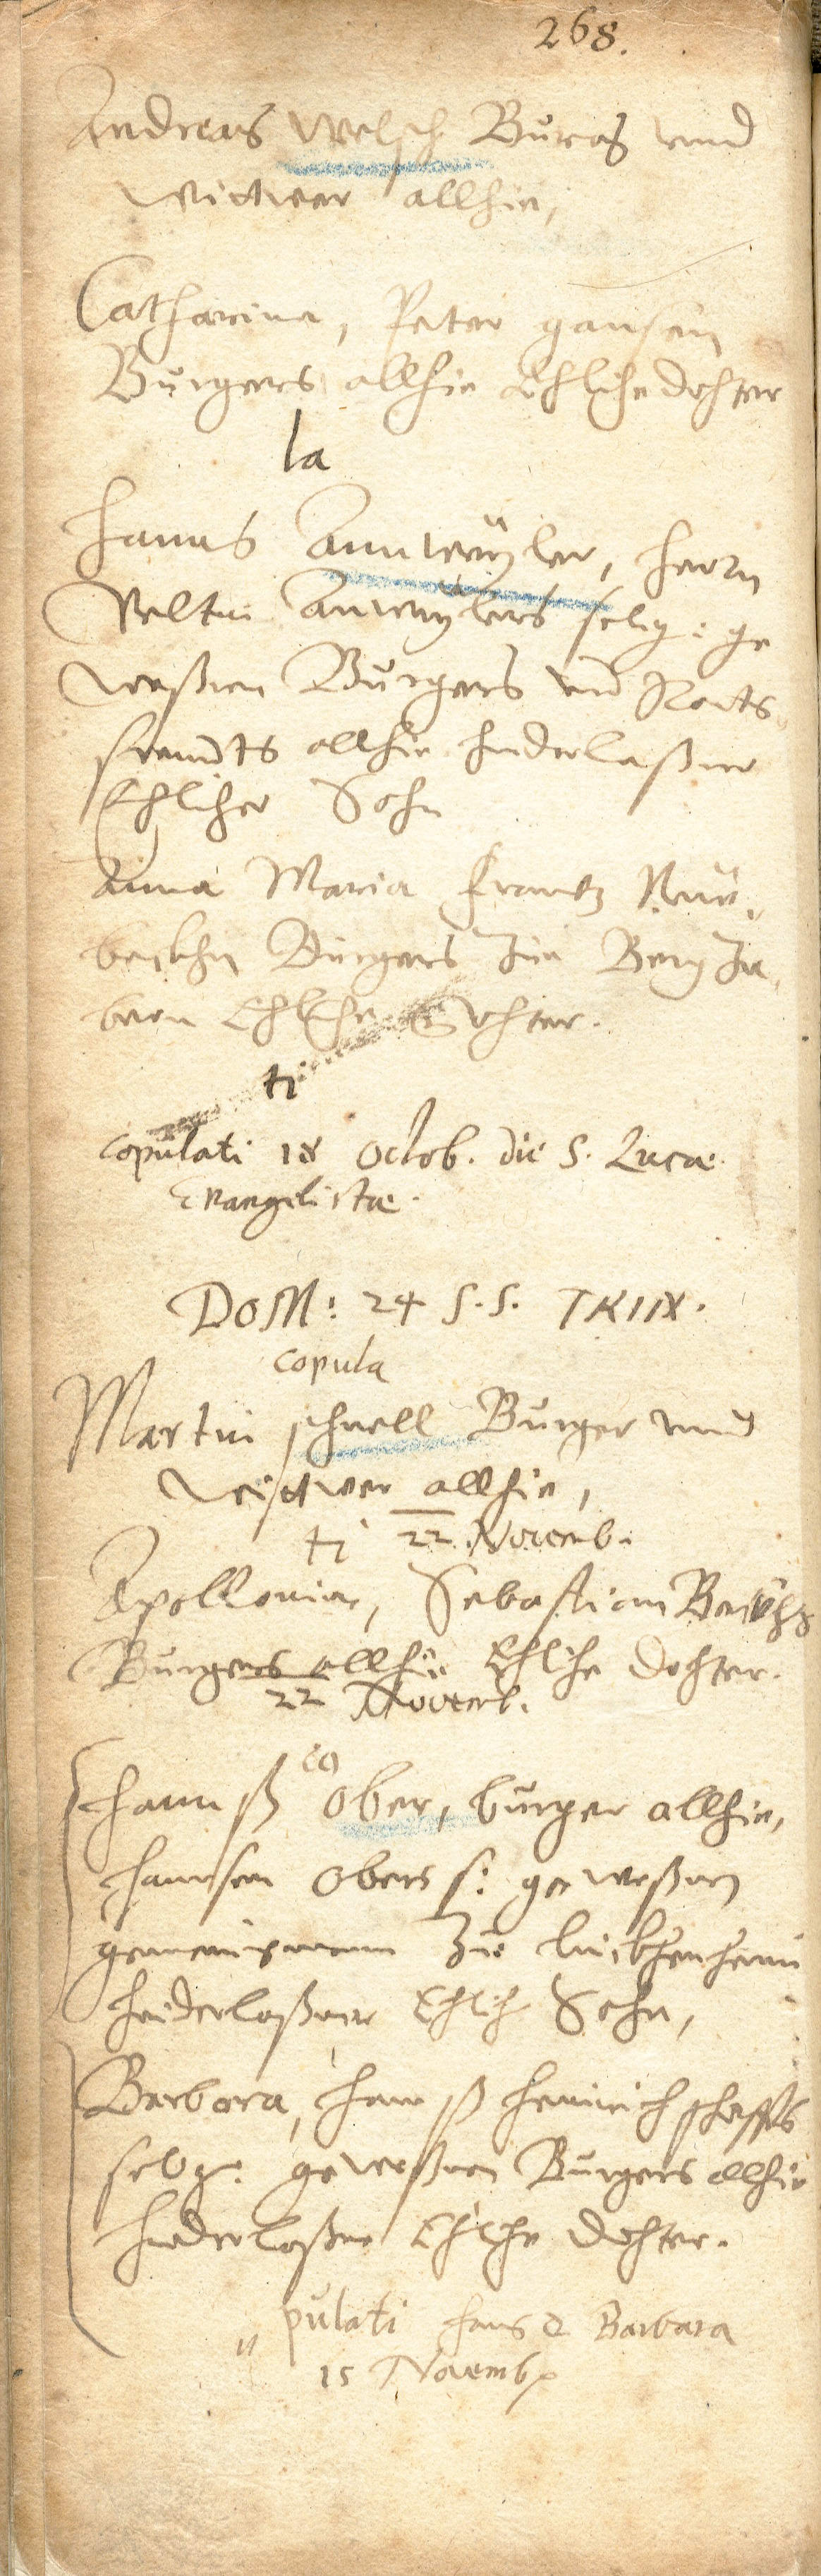 268.
Andreas Welsch Burgr vnd
Wittwer allhie,
Catharina, Peter gansen
Burgers allhie Ehliche dochter
la
Hanns Annweyler, herrn
Veltin Anweylers selig: ge
weßnen Burgers vnd Rats
freundts allhie hinderlaßner
Ehlicher Sohn
Anna Maria Frantz
Burgers zue Bergza
bern Ehliche Dochter.
ti
copulati 18 Octob. die S. Lucæ
Evangelistæ.
DOM: 24 S. S.
copula
Martin schnell Burger vnnd
Wittwer allhie,
ti 22 Novemb.
Apollonia, Sebastian
Burgers allhie Ehliche dochter.
22 Novemb.
co
Hannß Ober, burger allhie,
Hannsen Obers s: geweßnen
gemeinsmann zue
hinderlaßner Ehlich Sohn,
Barbara, Hanß Heinrich schaffts
selig: geweßnen Burgers allhie
hinderlaßne Ehliche dochter.
pulati Hans & Barbara
15 Novemb.